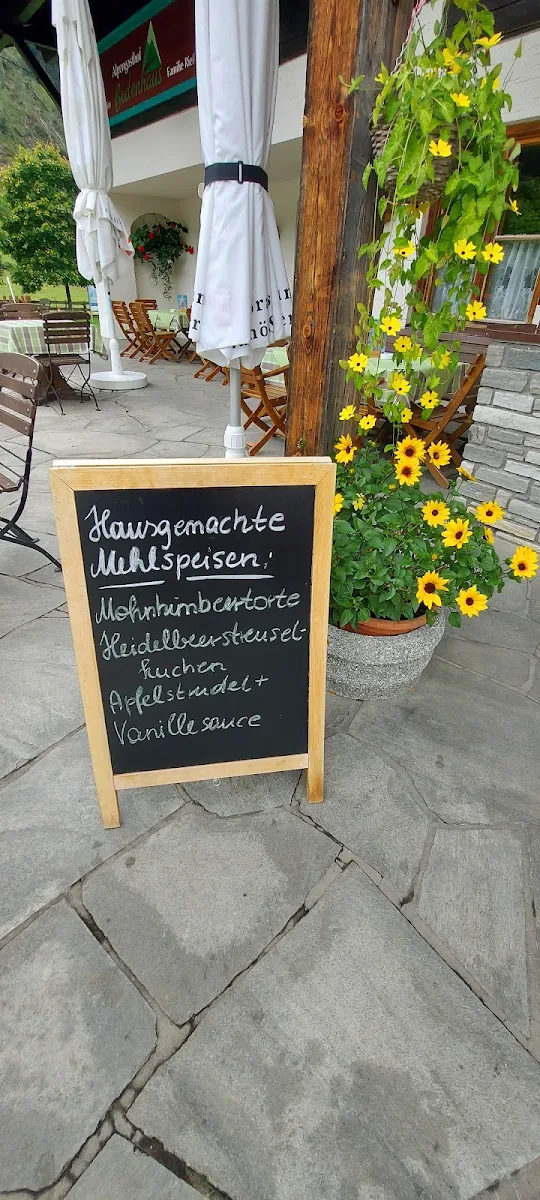 Alpengasthof
Bodenhaus
Familie
Hausgemachte
Mehlspeisen:
Mohnhimbeertorte
Heidelbeerstreusel-
kuchen
Apfelstrudel +
Vanillesauce